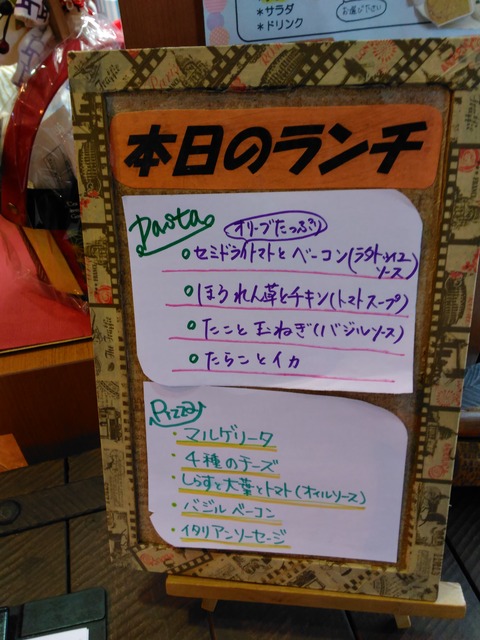 *サラダ
*ドリンク
お選び下さい
本日のランチ
Pasta
オリーブたっぷり
セミドライトマトとベーコン(ラタトゥイユ
ソース)
ほうれん草とチキン(トマトスープ)
たこと玉ねぎ(バジルソース)
たらことイカ
Pizza
・マルゲリータ
・4種のチーズ
・しらすと大葉とトマト(オイルソース)
・バジルベーコン
・イタリアンソーセージ